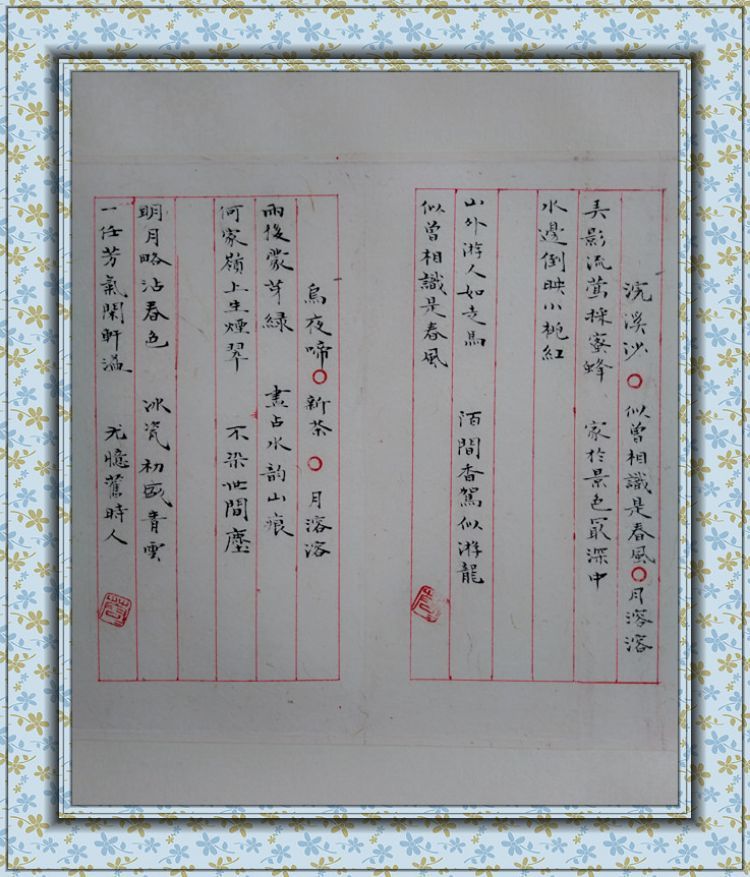 浣溪沙○似曾相識是春風○月溶溶
美影流鶯採蜜蜂 家於景色最深中
水邊倒映小桃紅
山外游人如走馬 陌間香駕似游龍
似曾相識是春風
烏夜啼○新茶○月溶溶
雨後蒙芽綠 盡占水韵山痕
何家嶺上生煙翠 不染世間塵
明月略沾春色 冰瓷初感青雲
一任芳氣閑軒溢 尤憶舊時人